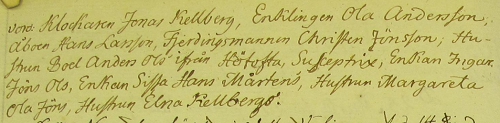 voro: Klockaren Jonas Kellberg, Enklingen Ola Andersson,
Åboen Hans Larsson, Fjerdingsmannen Christen Jönsson; Hu-
strun Boel Anders Ols ifrån Höfofta, Susceptrix, Enkan Ingar
Jöns Ols, Enkan Sissa Hans Mårtens, Hustrun Margareta
Ola Jöns, Hustrun Elna Kellbergs.